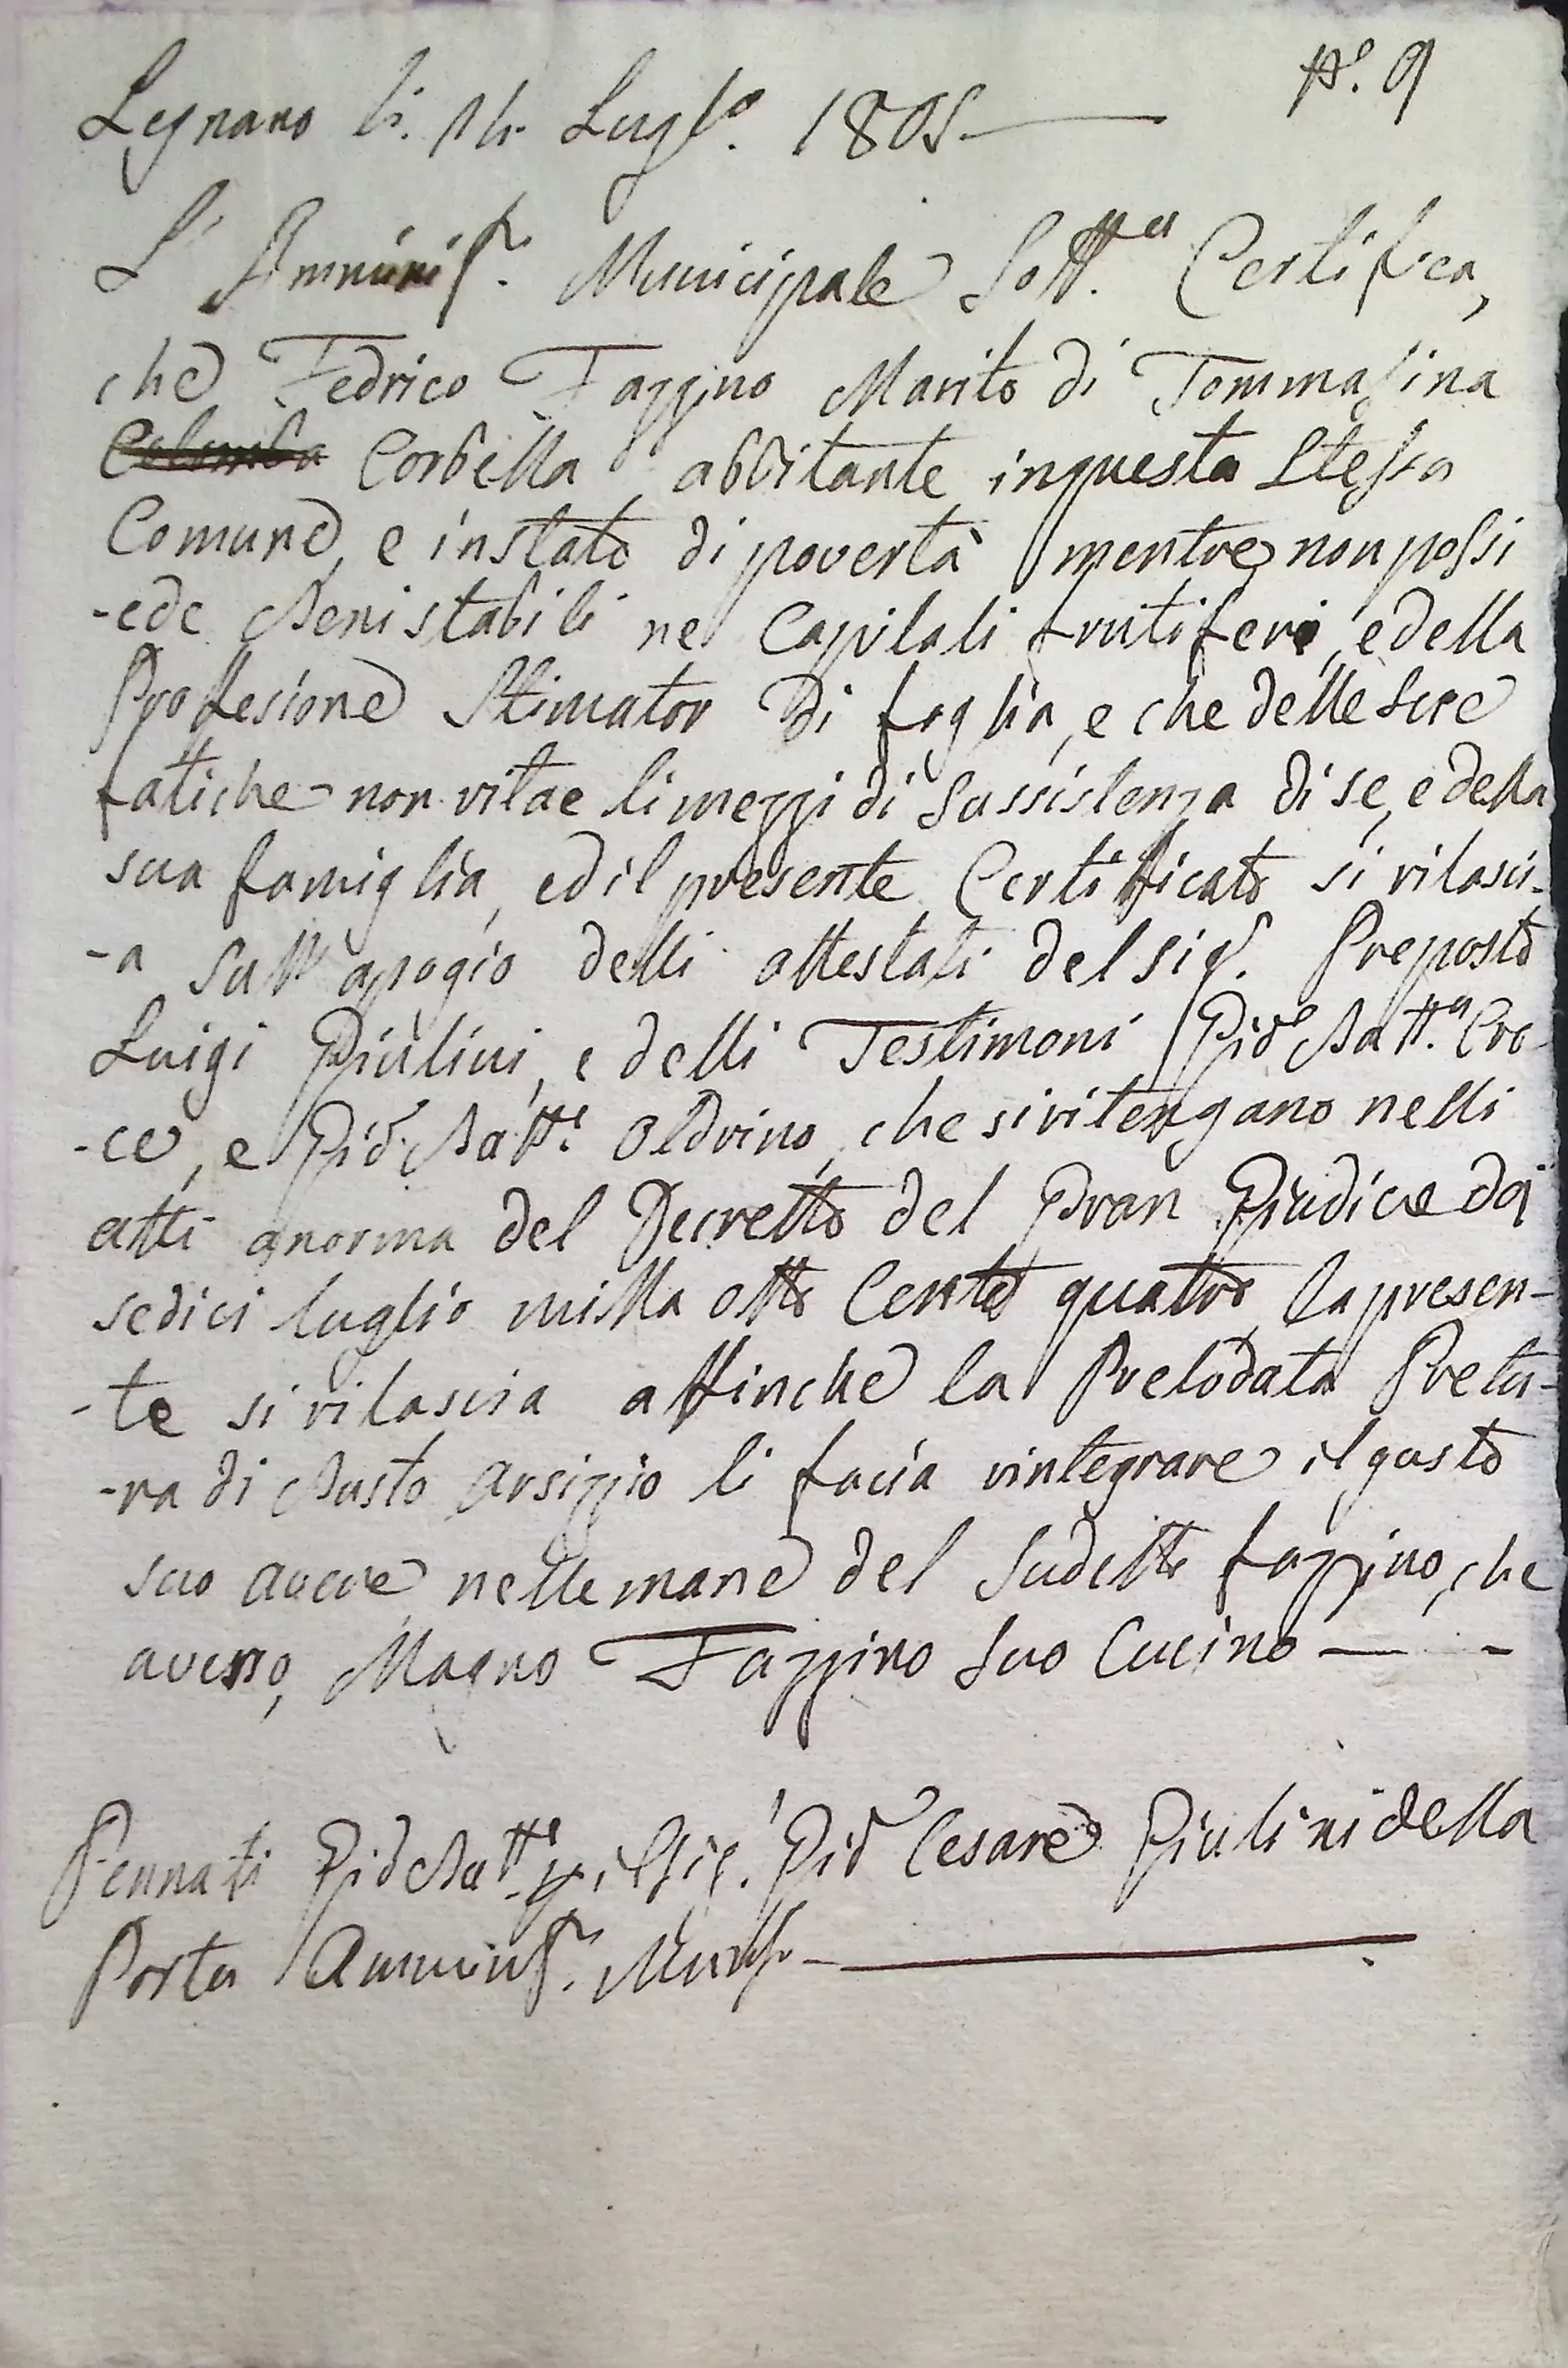 N.º 9
Legnano li. 14. Lugl.º 1805
L' Amminis.ne Municipale Sott.a Certifica,
che Fedrico Fazzino Marito di Tommasina
Colomba Corbella abbitante inquesta Stessa
Comune, e instato di povertà mentre non possi
-ede Beni stabili ne Capitali frutiferi, e della
Proffesione Stimator di foglia, e che delle sue
fatiche non ritae li mezzi di Sussistenza di se, e della
sua famiglia, ed il presente Certificato si rilasci-
-a sull' apogio delli attestati del Sig.r Preposto
Luigi Giulini, e delli Testimoni Gio Batt.a Cro-
-ce, e Gio. Batt.a Oldrino, che si ritengano nelli
atti a norma del Decretto del Gran Giudice dei
sedici luglio milla otto Cento quatro, la presen-
-te si rilascia affinche la Prelodata Pretu-
-ra di Busto Arsizzio li facia rintegrare il gusto
suo avere nelle mane del Sudetto fazzino, che
averso, Magno Fazzino Suo Cucino
Pennati Gio Batt.a p. il Sig.r Gio Cesare Giulini della
Porta Amminis.r Mun.le